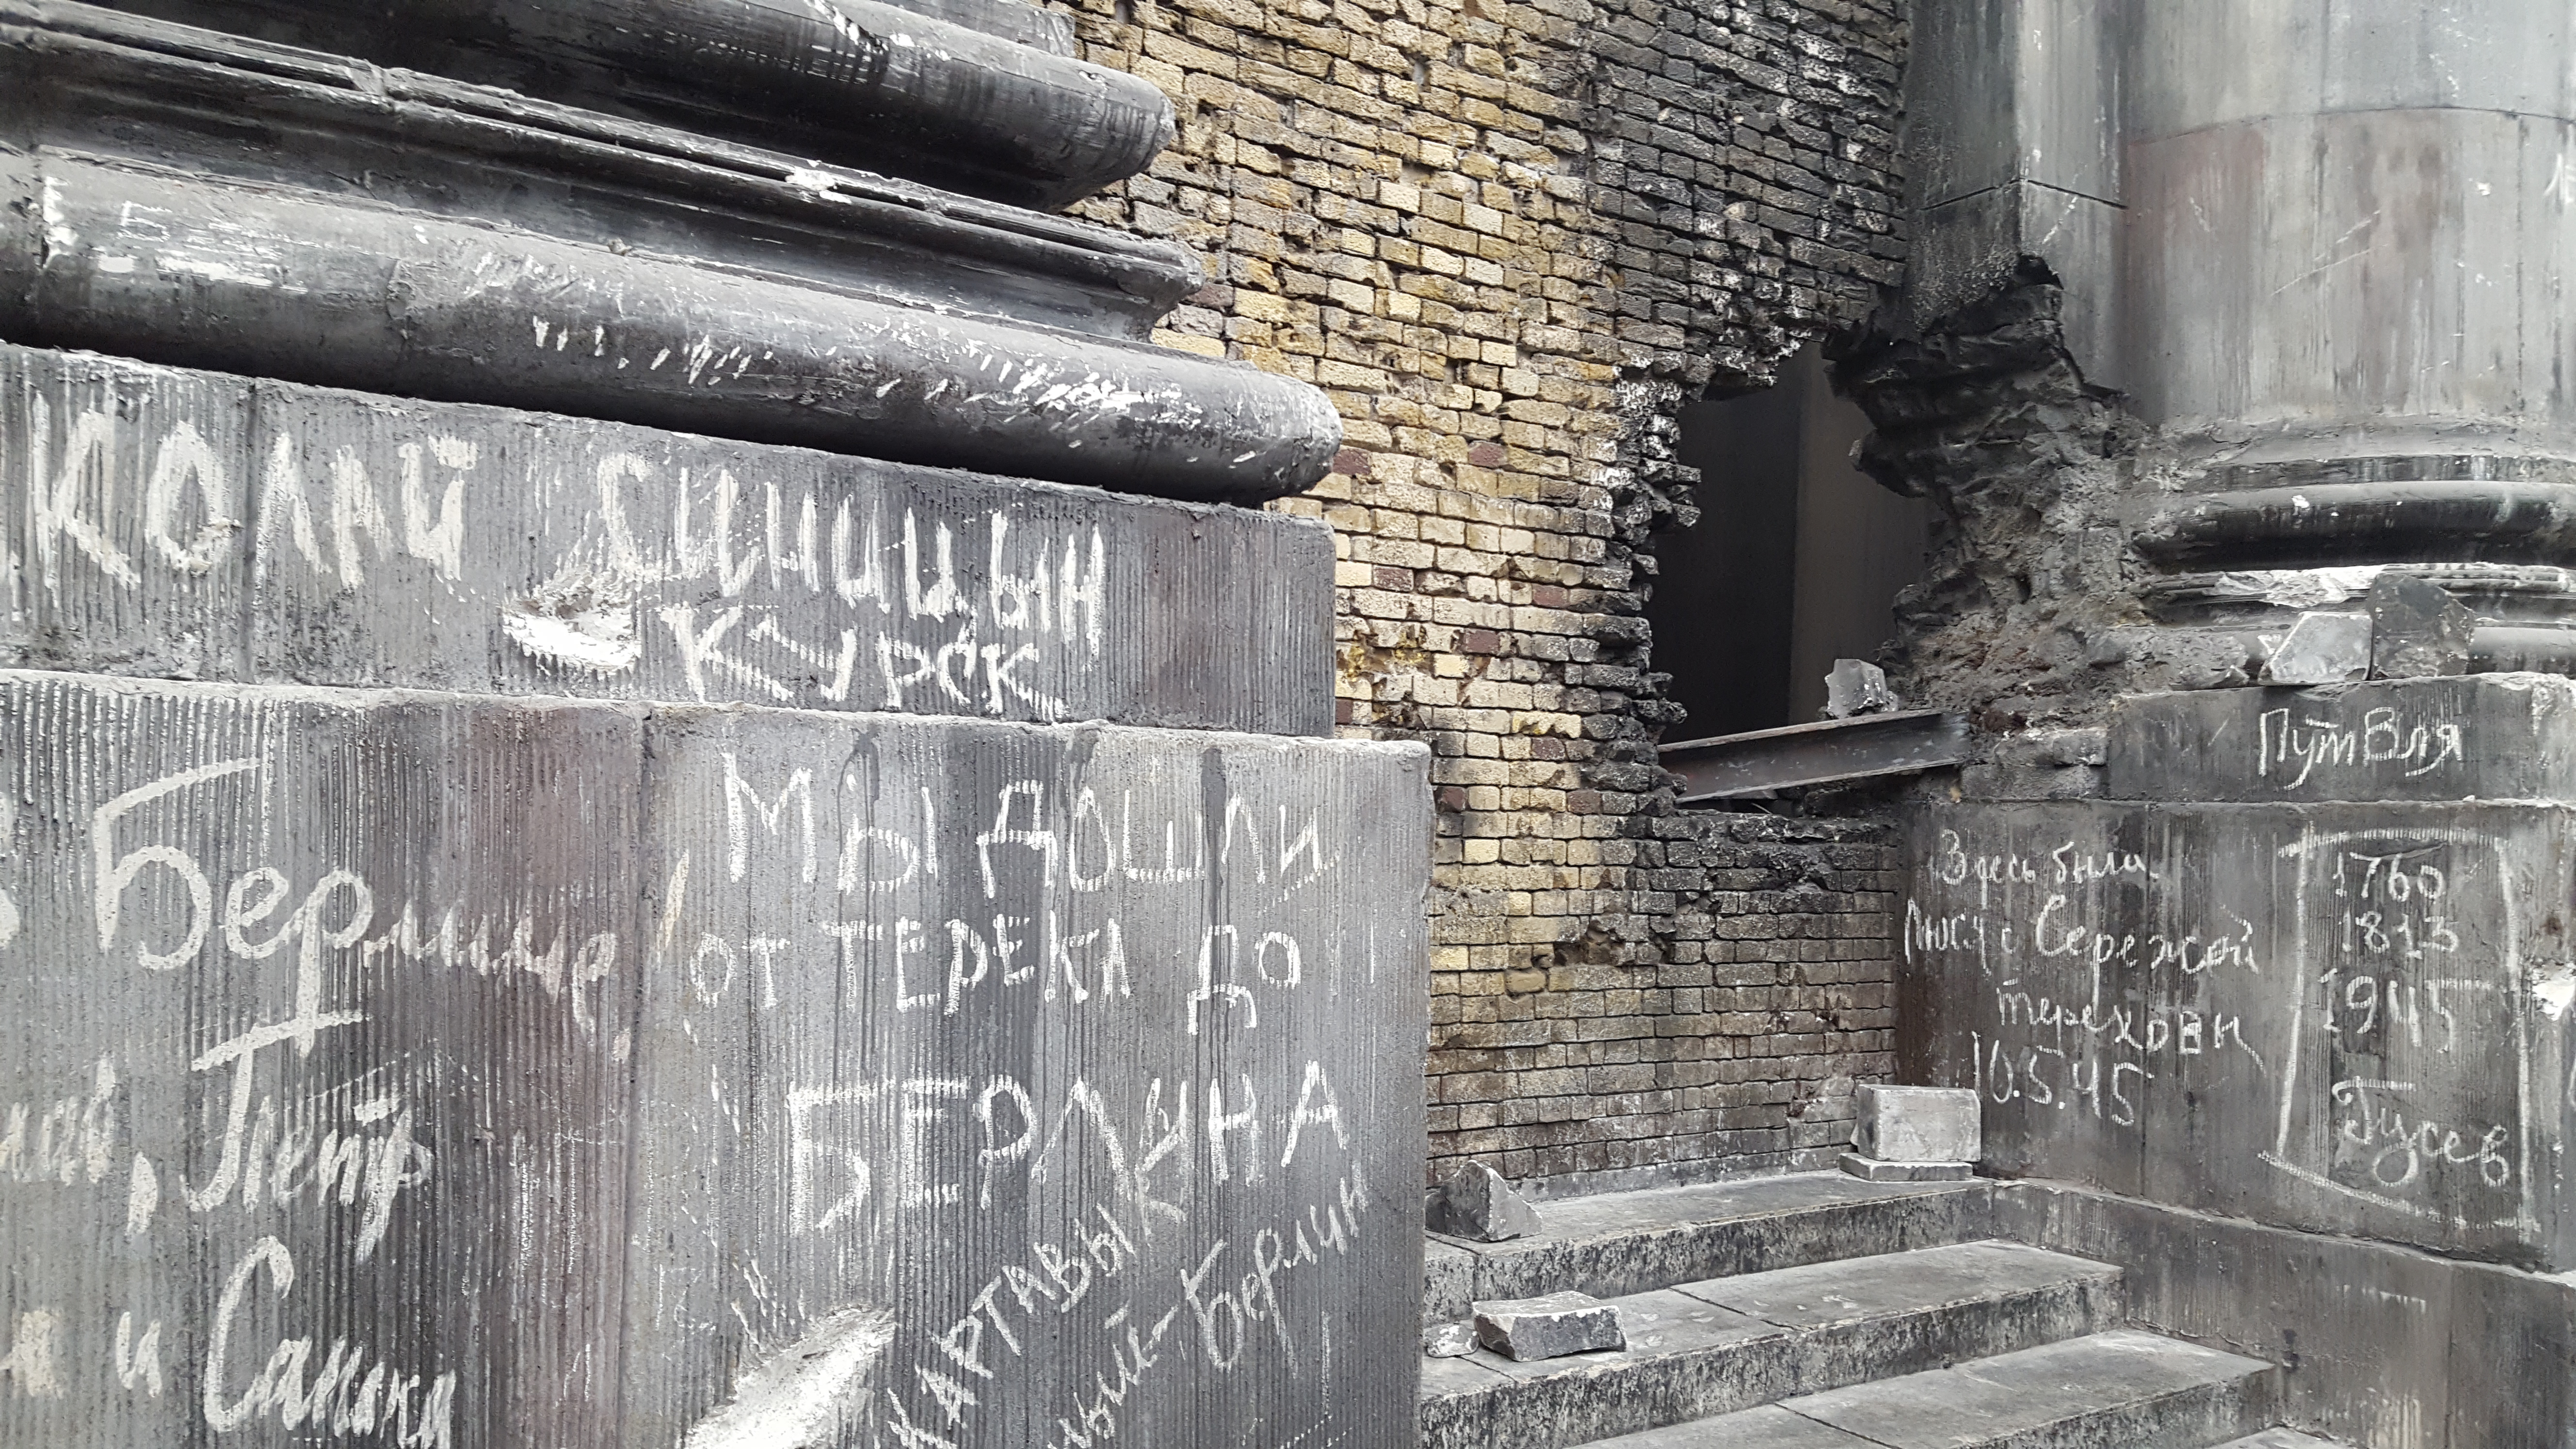 КОЛАЙ СИНИЦЫН
КУРСК
Берлине
Петр
и Сашка
МЫ ДОШЛИ
ОТ ТЕРЕКА ДО
БЕРЛИНА
КАРТАВЫК
Берлин
Путвля
Здесь были
Люся с Сережой
Тереховы
10.5.45
1760
1813
1945
Гусев